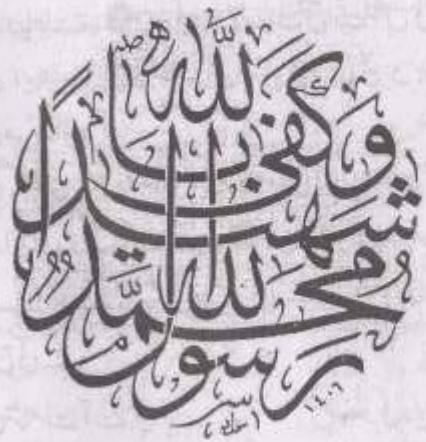 وَكَفَى بِاللَّهِ
شَهِيدًا
مُحَمَّدٌ رَسُولُ اللَّهِ
١٤٠٦